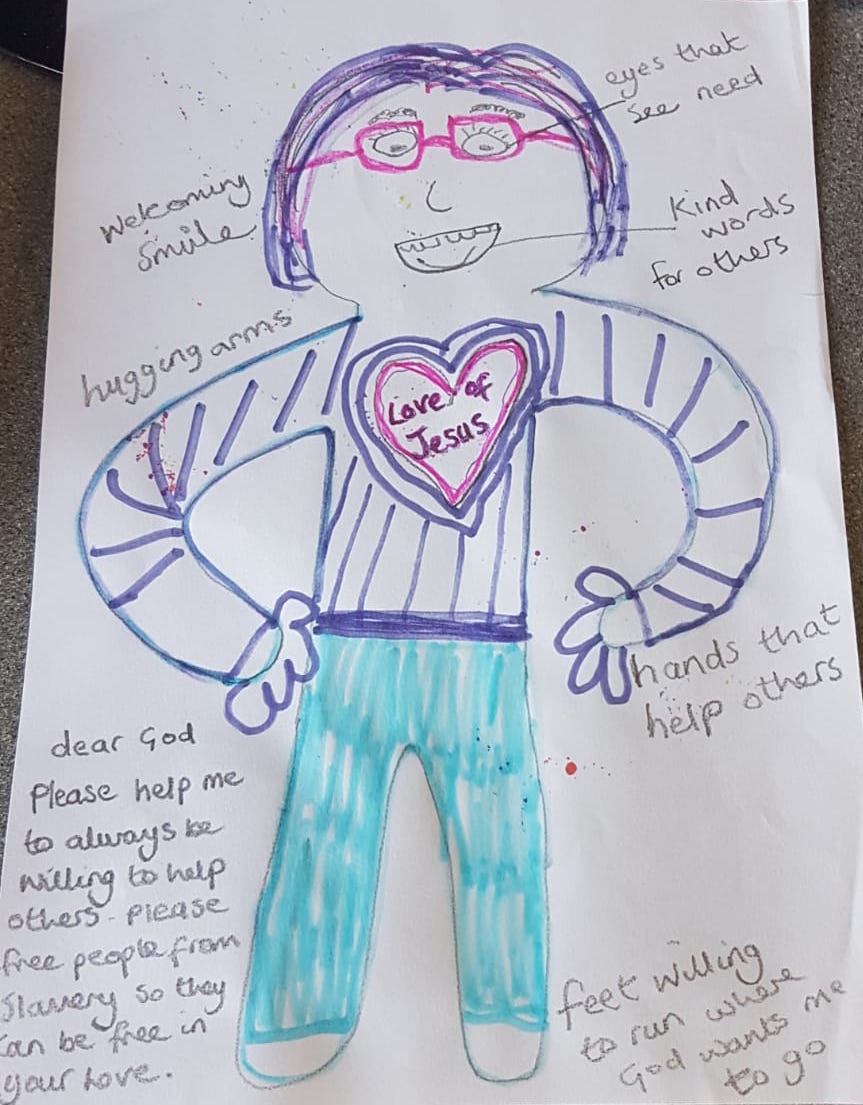 eyes that
see need
Welcoming
smile
Kind
words
for others
hugging arms
Love of
Jesus
hands that
help others
dear God
Please help me
to always be
willing to help
others - Please
free people from
Slavery so they
can be free in
your Love.
feet willing
to run where
God wants me
to go